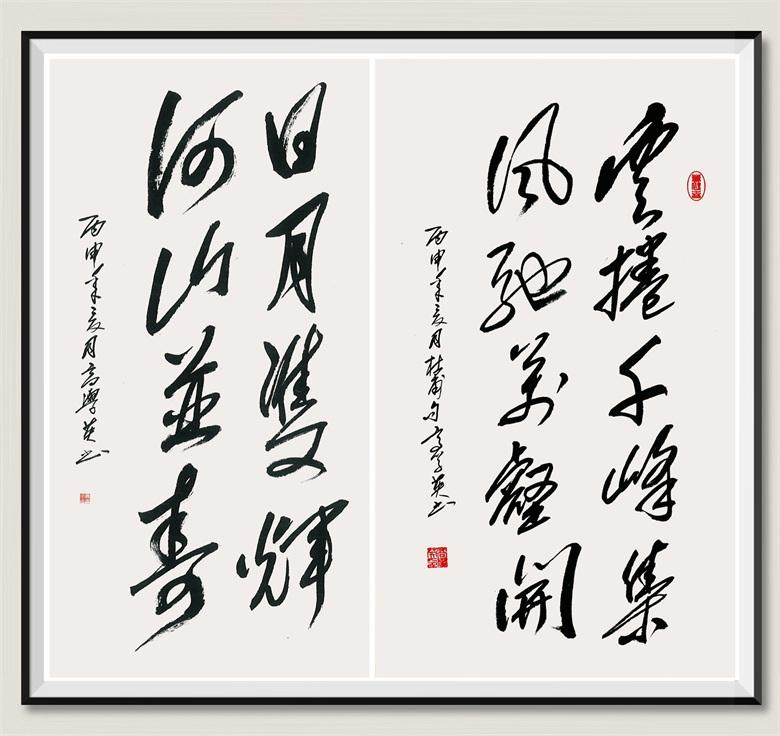 雲捲千峰集
風馳萬壑開
丙申年亥月杜甫句高學英书
日月雙輝
河山並壽
丙申年亥月高學英书